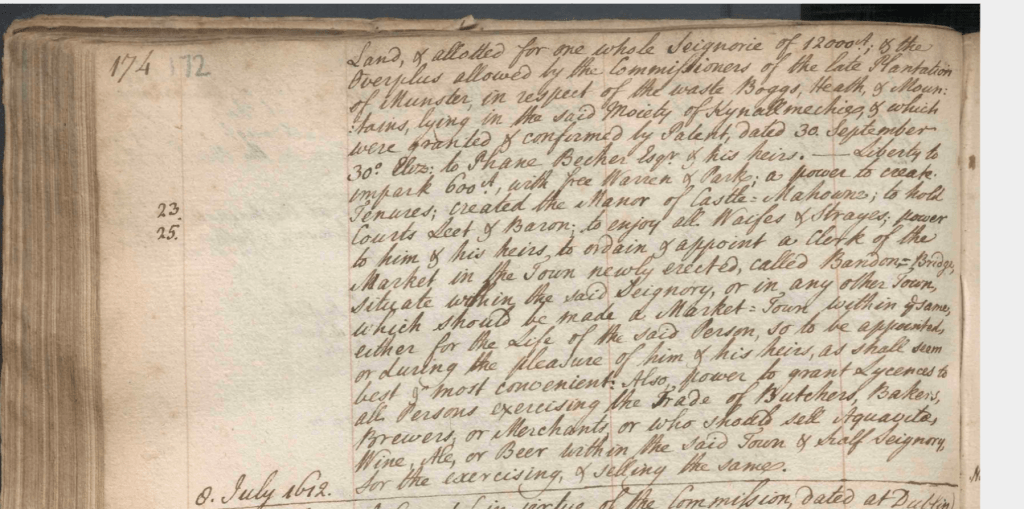 174 172
Land, & allotted for one whole Seignorie of 12000A; & the
Overplus allowed by the Commissioners of the late Plantation
of Munster, in respect of the waste Boggs, Heath, & Moun:
:tains, lying in the said Moiety of Kynallmechie, & which
were granted & confirmed by Patent, dated 30. September
30.o Eliz: to Phane Becher Esqr & his heirs. — Liberty to
impark 600A, with free Warren & Park; a power to create
23. Tenures; created the Manor of Castle=Mahowne; to hold
25. Courts Leet & Baron; to enjoy all Waifes & Strayes; power
to him & his heirs, to ordain & appoint a Clerk of the
Market in the Town newly erected, called Bandon=Bridge,
situate within the said Seignory, or in any other Town,
which should be made a Market=Town within ye same,
either for the Life of the said Person, so to be appointed,
or during the pleasure of him & his heirs, as shall seem
best & most convenient: Also, power to grant Lycences to
all Persons exercising the Trade of Butchers, Bakers,
Brewers, or Merchants, or who should sell Aquavita,
Wine, Ale, or Beer within the said Town & half Seignory,
for the exercising, & selling the same.
8. July 1612.
in virtue of the Commission, dated at Dublin